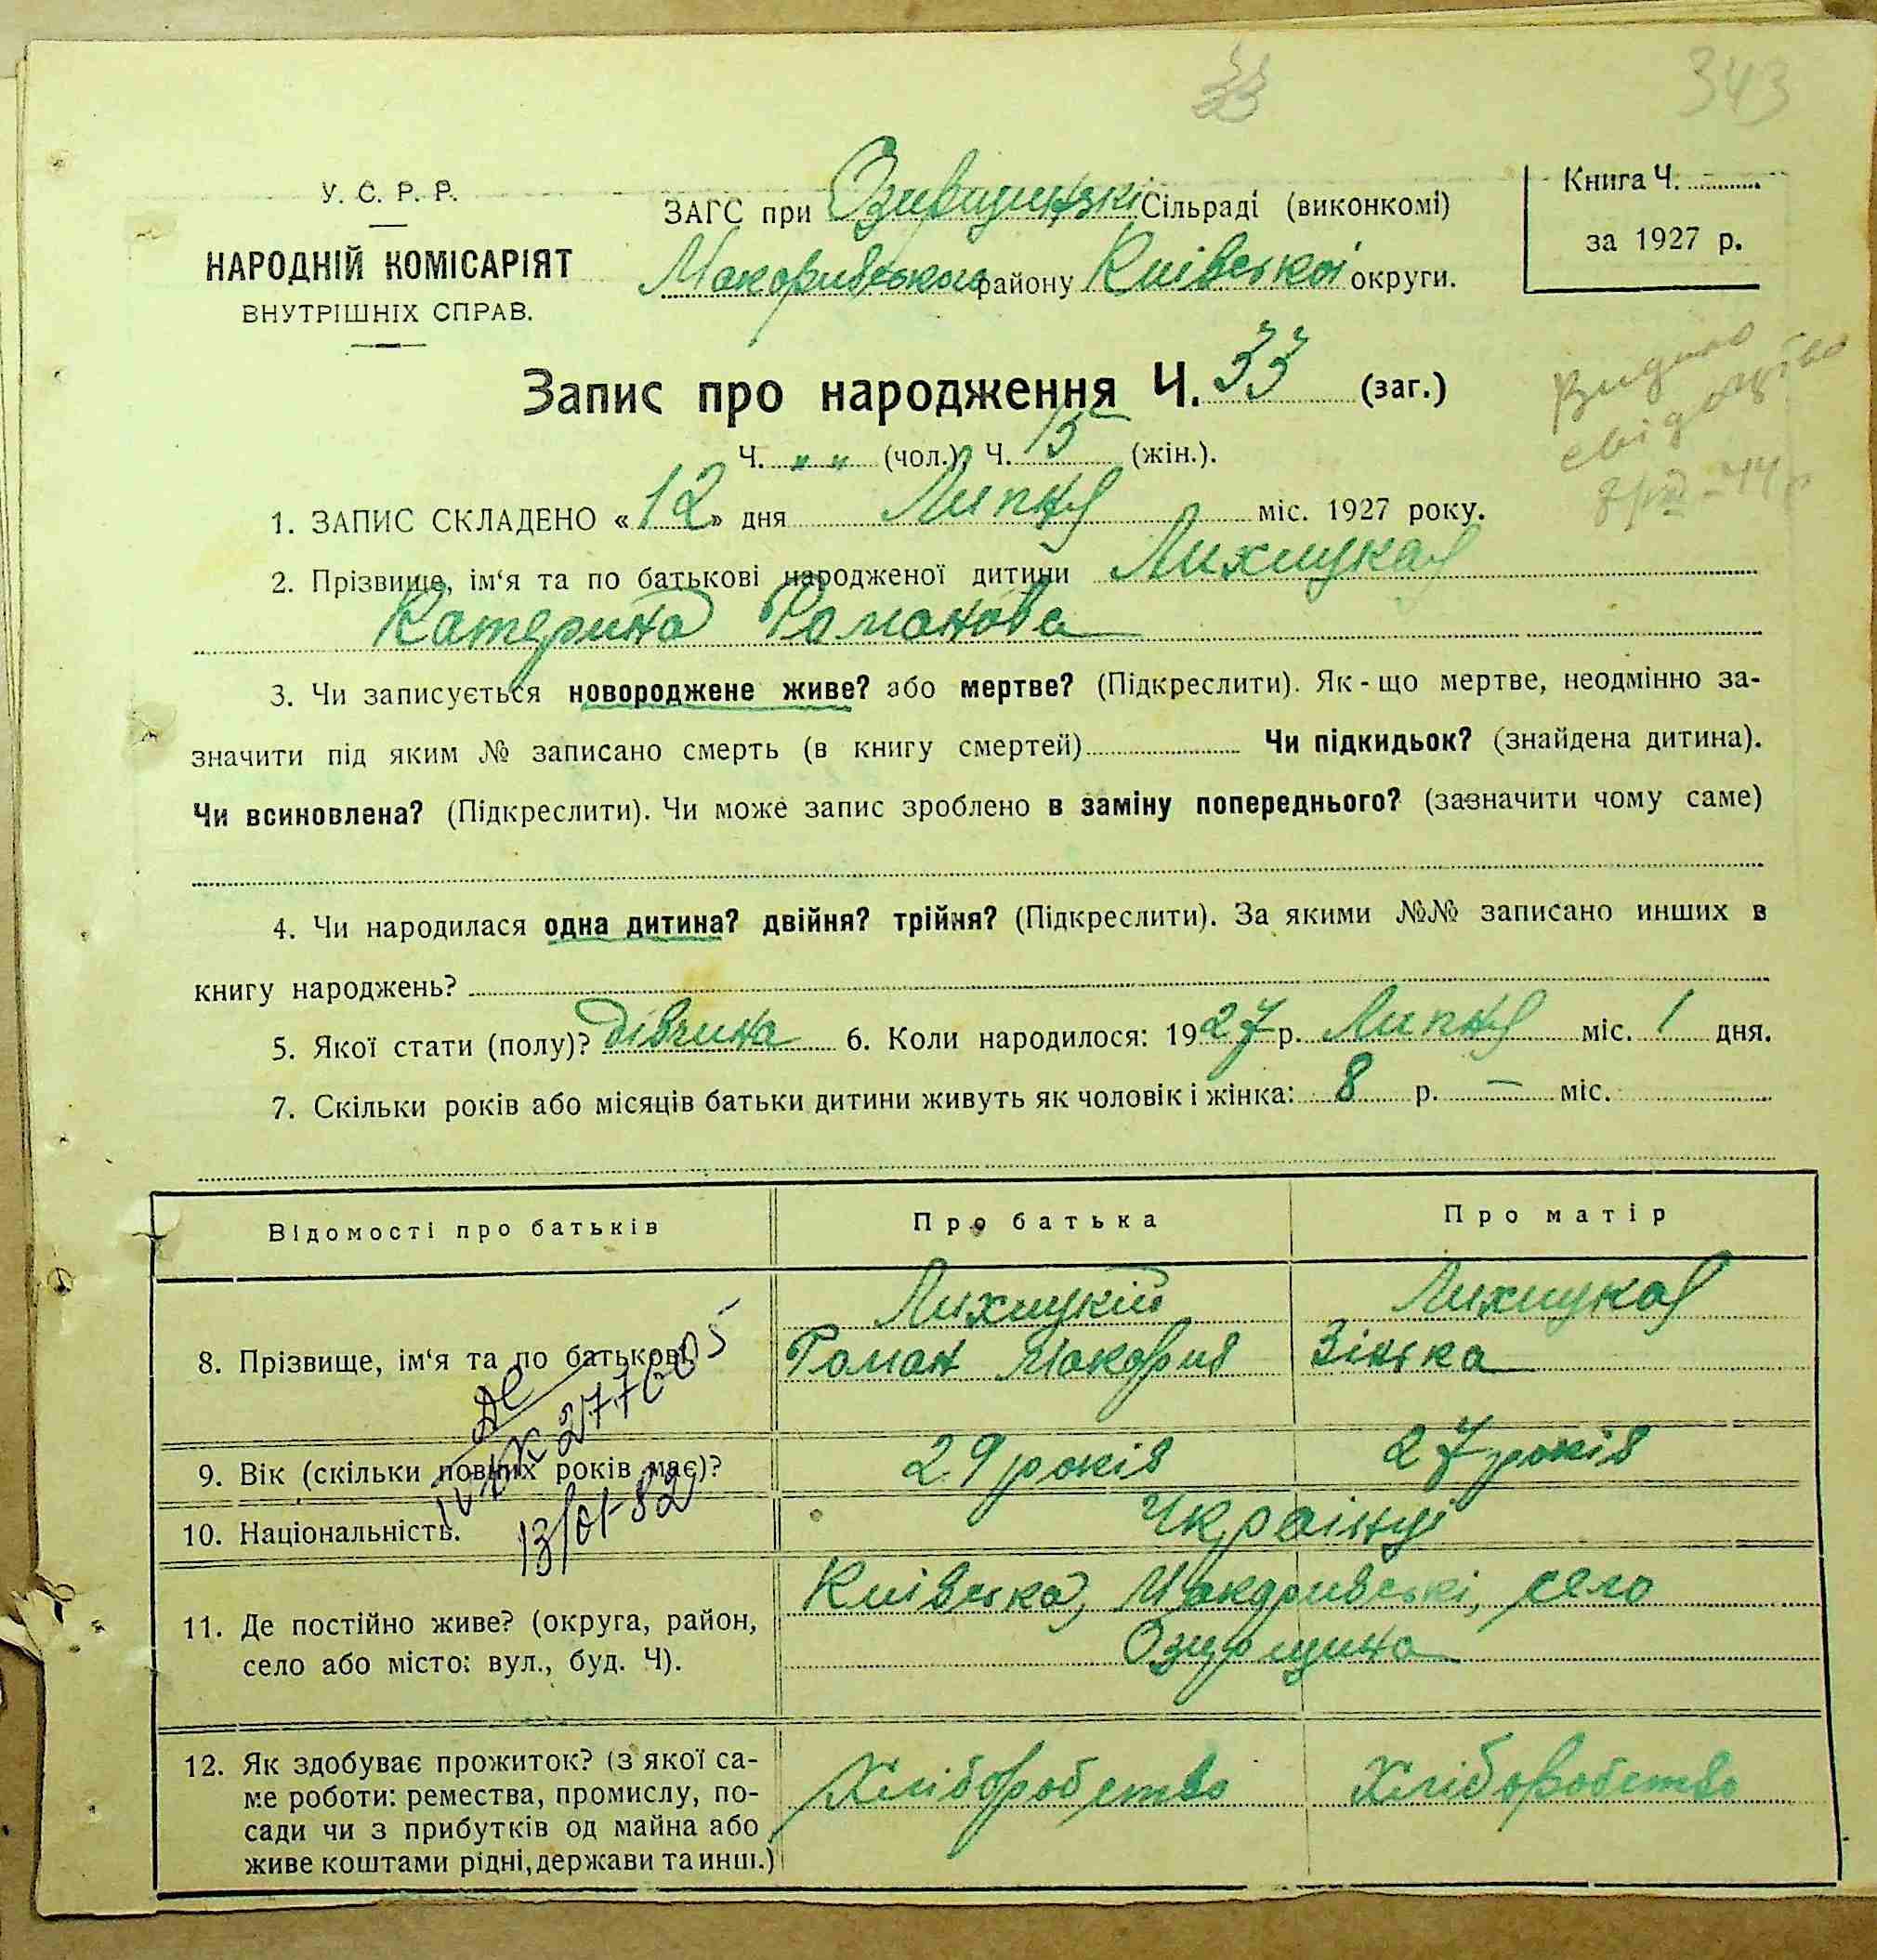 33
343
У. С. Р. Р.
НАРОДНІЙ КОМІСАРІЯТ
ВНУТРІШНІХ СПРАВ.
ЗАГС при Сільраді (виконкомі)
Макоривського району Київської округи.
Книга Ч.
за 1927 р.
Запис про народження Ч. 33 (заг.)
Ч. „ „ (чол.), Ч. 15 (жін.).
Видано
свідоцтво
1. ЗАПИС СКЛАДЕНО «12» дня Липня міс. 1927 року.
2. Прізвище, ім‘я та по батькові народженої дитини Лихицкая
Катерина Романова
3. Чи записується новороджене живе? або мертве? (Підкреслити). Як-що мертве, неодмінно за-
значити під яким № записано смерть (в книгу смертей) Чи підкидьок? (знайдена дитина).
Чи всиновлена? (Підкреслити). Чи може запис зроблено в заміну попереднього? (зазначити чому саме)
4. Чи народилася одна дитина? двійня? трійня? (Підкреслити). За якими №№ записано инших в
книгу народжень?
5. Якої стати (полу)? дівчина 6. Коли народилося: 1927 р. Липня міс. 1 дня.
7. Скільки років або місяців батьки дитини живуть як чоловік і жінка: 8 р. — міс.
Відомості про батьків Про батька Про матір
8. Прізвище, ім‘я та по батькові Лихицкій Лихицкая
Роман Макорив Зінька
9. Вік (скільки повних років має)? 29 років 27 років
10. Національність. Українці
13/01-82
11. Де постійно живе? (округа, район,
село або місто: вул., буд. Ч).
Київська, Макоривські, село
Озирщина
12. Як здобуває прожиток? (з якої са-
ме роботи: ремества, промислу, по-
сади чи з прибутків од майна або
живе коштами рідні, держави та инш.)
Хліборобство Хліборобство